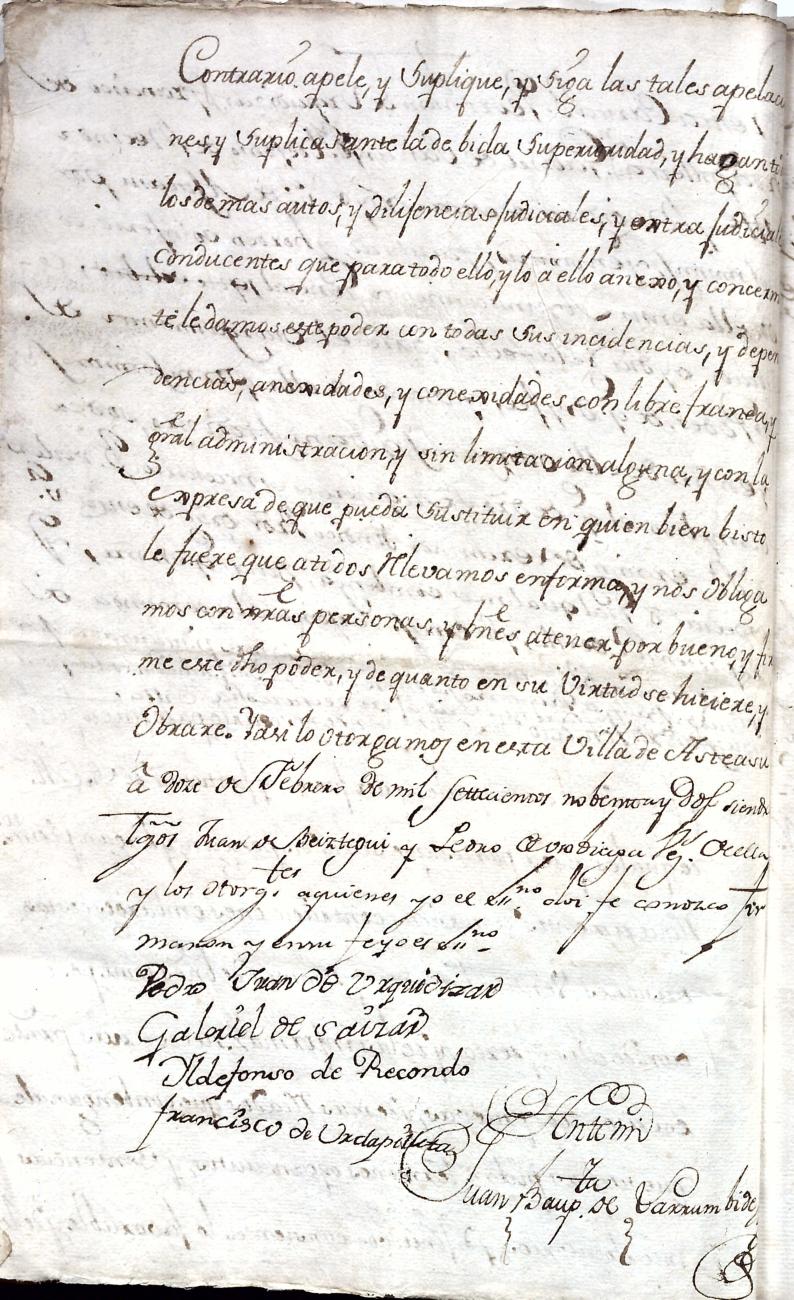 Contrario apele, y Suplique, y Siga las tales apelac
nes y Suplicas ante la debida Superioridad, y hagan t
los demas autos, y Dilisencias Judiciales, y extra Judicial
conducentes que para todo ello, y lo â ello anexo, y concern
te le damos este poder con todas Sus incidencias, y depen
dencias, anexidades, y conexidades, con libre franca, y
gral administracion, y sin limitacion alguna, y con la
expresa de que pueda Sustituir en quien bien bisto
le fuere que a todos rrlevamos en forma, y nos Obliga
mos con nras personas, y bnes atener por bueno, y fir
me este dho poder, y de quanto en su Virtud se hiciere, y
Obrare. Y asi lo otorgamos en esta Villa de Asteasu
â doze de Febrero de mil Settecientos nobenta y Dos siendo
tgos Juan de Beiztegui y Pedro de vez. de ella
y los otorgtes aquienes yo el ssno doi fe conozco fir
maron y en mi fe yo el ssno
Pedro Juan de Urquidizar
Gabriel de Saizar
Ildefonso de Recondo
francisco de Urdapilleta
Antemi
Juan Baupta de Larrumbide